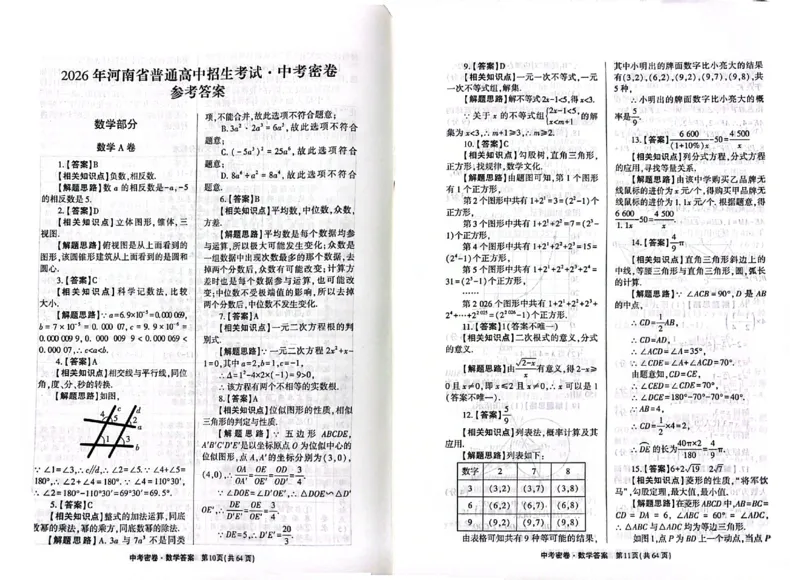 2026年河南省普通高中招生考试·中考密卷
参考答案
数学部分
数学A卷
1.【答案】B
【相关知识点】负数,相反数.
【解题思路】数a的相反数是-a,-5
的相反数是5.
2.【答案】D
【相关知识点】立体图形,锥体,三
视图.
【解题思路】俯视图是从上面看到的
图形,该圆锥形建筑从上面看到的是圆和
圆心.
3.【答案】C
【相关知识点】科学记数法,比较
大小.
【解题思路】∵a=6.9×10⁻⁵=0.000 069,
b=7×10⁻⁵=0.000 07,c=9.9×10⁻⁶=
0.000 009 9,0.000 009 9<0.000 069<
0.000 07,∴c<a<b.
4.【答案】A
【相关知识点】相交线与平行线,同位
角,度、分、秒的转换.
【解题思路】如图,
c d
4 5 2 a
1 3 b
∵∠1=∠3,∴c//d,∴∠2=∠5.∵∠4+∠5=
180°,∴∠2+∠4=180°.∵∠4=110°30′,
∴∠2=180°-110°30′=69°30′=69.5°.
5.【答案】C
【相关知识点】整式的加法运算,同底
数幂的乘法,幂的乘方,同底数幂的除法.
【解题思路】A.3a与7a³不是同类
项,不能合并,故此选项不符合题意;
B.3a²·2a³=6a⁵,故此选项不符合
题意;
C.(-5a³)²=25a⁶,故此选项符合
题意;
D.8a⁶÷a²=8a⁴,故此选项不符合
题意.
6.【答案】B
【相关知识点】平均数,中位数,众数,
方差.
【解题思路】平均数是每个数据均参
与运算,所以极大可能发生变化;众数是
一组数据中出现次数最多的那个数据,去
掉两个数后,众数有可能改变;计算方
差时也是每个数据参与运算,也可能改
变;中位数不受极端值的影响,所以去掉
两个分数后,中位数不发生变化.
7.【答案】A
【相关知识点】一元二次方程根的判
别式.
【解题思路】∵一元二次方程2x²+x-
1=0,其中a=2,b=1,c=-1,
∴Δ=1²-4×2×(-1)=9>0,
∴该方程有两个不相等的实数根.
8.【答案】A
【相关知识点】位似图形的性质,相似
三角形的判定与性质.
【解题思路】∵五边形ABCDE,
A′B′C′D′E′是以坐标原点O为位似中心的
位似图形,点A,A′的坐标分别为(3,0),
(4,0),∴OA/OA′=OE/OE′=OD/OD′=3/4.
∵∠DOE=∠D′OE′,∴△DOE∽△D′
OE′,∴DE/D′E′=OE/OE′=3/4.
∵DE=5,∴D′E′=20/3.
中考密卷·数学答案 第10页(共64页)
9.【答案】D
【相关知识点】一元一次不等式,一元
一次不等式组,解集.
【解题思路】解不等式2x-1<5,得x<3.
∵关于x的不等式组{2x-1<5, x<m+1的解
集为x<3,∴m+1≥3,∴m≥2.
10.【答案】C
【相关知识点】勾股树,直角三角形,
正方形,找规律,数学文化.
【解题思路】由题图可知,第1个图形
有1个正方形,
第2个图形中共有1+2¹=3=(2²-1)个
正方形,
第3个图形中共有1+2¹+2²=7=(2³-
1)个正方形,
第4个图形中共有1+2¹+2²+2³=15=
(2⁴-1)个正方形,
第5个图形中共有1+2¹+2²+2³+2⁴=
31=(2⁵-1)个正方形,
……
第2 026个图形中共有1+2¹+2²+2³+
2⁴+…+2²⁰²⁵=(2²⁰²⁶-1)个正方形.
11.【答案】1(答案不唯一)
【相关知识点】二次根式的意义,分式
的意义.
【解题思路】由√(2-x)/x有意义,得2-x≥
0且x≠0,即x≤2且x≠0,∴x可以是1
(答案不唯一).
12.【答案】5/9
【相关知识点】列表法,概率计算及其
应用.
【解题思路】列表如下:
数字 2 7 8
3 (3,2) (3,7) (3,8)
6 (6,2) (6,7) (6,8)
9 (9,2) (9,7) (9,8)
由表格可知共有9种等可能的结果,
其中小明出的牌面数字比小亮大的结果
有(3,2),(6,2),(9,2),(9,7),(9,8),共
5种,
∴小明出的牌面数字比小亮大的概
率是5/9.
13.【答案】6 600/(1+10%)x-50=4 500/x
【相关知识点】列分式方程,分式方程
的应用,寻找等量关系.
【解题思路】由该中学购买乙品牌无
线鼠标的进价为x元/个,得购买甲品牌无
线鼠标的进价为1.1x元/个.根据题意,得
6 600/1.1x-50=4 500/x.
14.【答案】4/9π
【相关知识点】直角三角形斜边上的
中线,等腰三角形与直角三角形,圆,弧长
的计算.
【解题思路】∵∠ACB=90°,D是AB
的中点,
∴CD=1/2AB,
∴CD=AD,
∴∠ACD=∠A=35°,
∴∠CDE=∠A+∠ACD=70°.
由题意知,CD=CE,
∴∠CED=∠CDE=70°,
∴∠DCE=180°-70°-70°=40°.
∵AB=4,
∴CD=1/2×4=2,
∴DE的长为40π×2/180=4/9π.
15.【答案】6+2√19 2√7
【相关知识点】菱形的性质,“将军饮
马”,勾股定理,最大值,最小值.
【解题思路】在菱形ABCD中,AB=BC=
CD=DA=6,∠ABC=60°=∠ADC,
∴△ABC与△ADC均为等边三角形.
如图1,点P为BD上一个动点,当点P
中考密卷·数学答案 第11页(共64页)